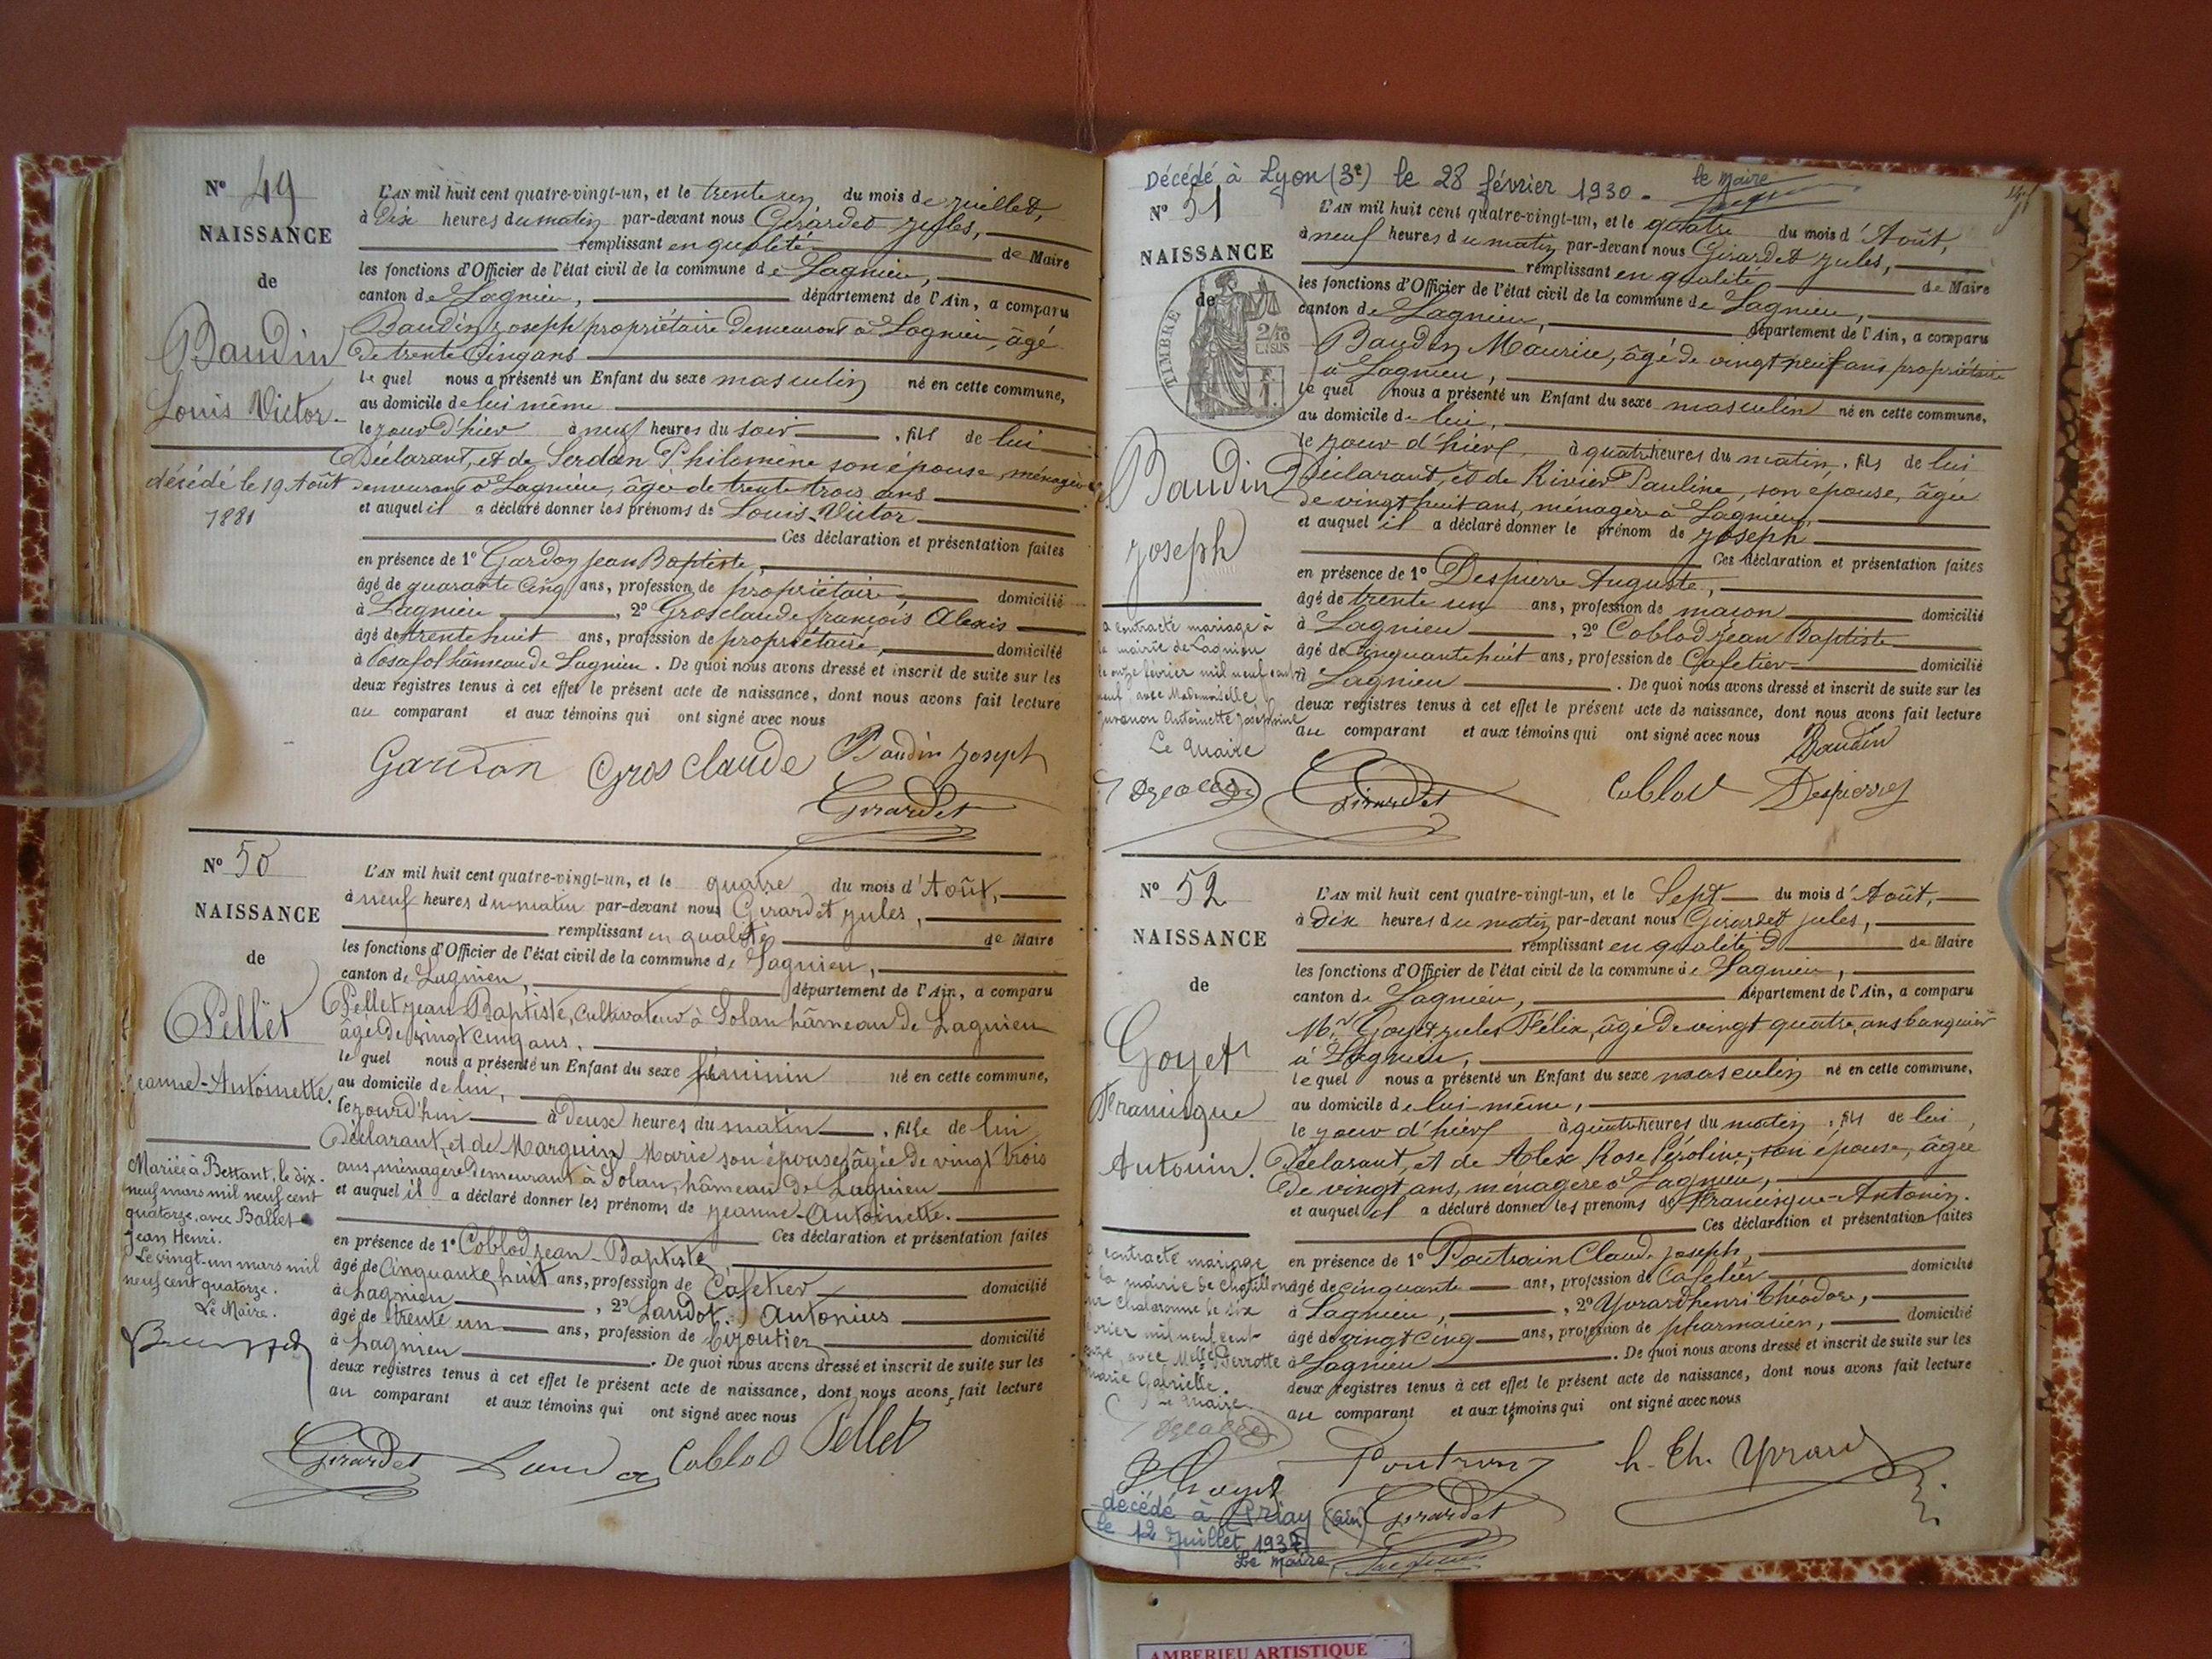 N° 49
NAISSANCE
de
Baudin
Louis Victor
décédé le 19 Août
1881
L'AN mil huit cent quatre-vingt-un, et le trente un du mois de juillet,
à dix heures du matin par-devant nous Girardet Jules,
remplissant en qualité de Maire
les fonctions d'Officier de l'état civil de la commune de Lagnieu,
canton de Lagnieu, département de l'Ain, a comparu
Baudin Joseph propriétaire demeurant à Lagnieu, âgé
de trente cinq ans
le quel nous a présenté un Enfant du sexe masculin né en cette commune,
au domicile de lui même
le jour d'hier à neuf heures du soir, fils de lui
Déclarant, et de Serdan Philomène son épouse, ménagère
demeurant à Lagnieu, âgée de trente trois ans
et auquel il a déclaré donner les prénoms de Louis-Victor
Ces déclaration et présentation faites
en présence de 1° Gardon Jean Baptiste,
âgé de quarante cinq ans, profession de propriétaire, domicilié
à Lagnieu, 2° Grosclaude françois Alexis
âgé de trente huit ans, profession de propriétaire, domicilié
à Posafol hâmeau de Lagnieu. De quoi nous avons dressé et inscrit de suite sur les
deux registres tenus à cet effet le présent acte de naissance, dont nous avons fait lecture
au comparant et aux témoins qui ont signé avec nous
Gardon Grosclaude Baudin Joseph
Girardet
N° 50
NAISSANCE
de
Pellet
Jeanne-Antoinette.
Mariée à Bettant, le dix-
neuf mars mil neuf cent
quatorze, avec Ballet
Jean Henri.
Le vingt-un mars mil
neuf cent quatorze.
Le Maire.
L'AN mil huit cent quatre-vingt-un, et le quatre du mois d'Août,
à neuf heures du matin par-devant nous Girardet Jules,
remplissant en qualité de Maire
les fonctions d'Officier de l'état civil de la commune de Lagnieu,
canton de Lagnieu, département de l'Ain, a comparu
Pellet Jean Baptiste, cultivateur à Solan hâmeau de Lagnieu
âgé de vingt cinq ans.
le quel nous a présenté un Enfant du sexe féminin né en cette commune,
au domicile de lui,
le jourd'hui à deux heures du matin, fille de lui
Déclarant, et de Marguin Marie son épouse, âgée de vingt trois
ans, ménagère demeurant à Solan, hâmeau de Lagnieu
et auquel il a déclaré donner les prénoms de Jeanne-Antoinette.
Ces déclaration et présentation faites
en présence de 1° Coblod Jean-Baptiste
âgé de Cinquante huit ans, profession de Cafetier domicilié
à Lagnieu, 2° Landot Antonius
âgé de trente un ans, profession de Bijoutier domicilié
à Lagnieu. De quoi nous avons dressé et inscrit de suite sur les
deux registres tenus à cet effet le présent acte de naissance, dont nous avons fait lecture
au comparant et aux témoins qui ont signé avec nous
Girardet Coblod Pellet
Décédé à Lyon (3e) le 28 février 1930. le Maire
N° 51
NAISSANCE
de
TIMBRE
Baudin
Joseph
a contracté mariage à
la mairie de Lagnieu
le onze février mil neuf cent
neuf, avec Mademoiselle
Juvanon Antoinette Joséphine
Le Maire
L'AN mil huit cent quatre-vingt-un, et le quatre du mois d'Août,
à neuf heures du matin par-devant nous Girardet Jules,
remplissant en qualité de Maire
les fonctions d'Officier de l'état civil de la commune de Lagnieu,
canton de Lagnieu, département de l'Ain, a comparu
Baudin Maurice, âgé de vingt neuf ans propriétaire
à Lagnieu,
le quel nous a présenté un Enfant du sexe masculin né en cette commune,
au domicile de lui,
le jour d'hier à quatre heures du matin, fils de lui
Déclarant, et de Rivier Pauline, son épouse, âgée
de vingt huit ans, ménagère à Lagnieu,
et auquel il a déclaré donner le prénom de Joseph
Ces déclaration et présentation faites
en présence de 1° Despierre Auguste,
âgé de trente un ans, profession de maçon domicilié
à Lagnieu, 2° Coblod Jean Baptiste
âgé de Cinquante huit ans, profession de Cafetier domicilié
à Lagnieu. De quoi nous avons dressé et inscrit de suite sur les
deux registres tenus à cet effet le présent acte de naissance, dont nous avons fait lecture
au comparant et aux témoins qui ont signé avec nous Baudin
Girardet Coblod Despierres
N° 52
NAISSANCE
de
Goyet
Francisque
Antonin.
a contracté mariage
à la mairie de Chatillon
sur Chalaronne le six
février mil neuf cent
avec Melle Perrotte
Marie Gabrielle.
Le Maire
L'AN mil huit cent quatre-vingt-un, et le Sept du mois d'Août,
à dix heures du matin par-devant nous Girardet Jules,
remplissant en qualité de Maire
les fonctions d'Officier de l'état civil de la commune de Lagnieu,
canton de Lagnieu, département de l'Ain, a comparu
Mr Goyet Jules Félix, âgé de vingt quatre ans banquier
à Lagnieu,
le quel nous a présenté un Enfant du sexe masculin né en cette commune,
au domicile de lui-même,
le jour d'hier à quatre heures du matin, fils de lui,
Déclarant, et de Alex Rose Péroline, son épouse, âgée
de vingt ans, ménagère à Lagnieu,
et auquel il a déclaré donner les prénoms de Francisque-Antonin.
Ces déclaration et présentation faites
en présence de 1° Poutrain Claude Joseph,
âgé de cinquante ans, profession de Cafetier domicilié
à Lagnieu, 2° Yvrard henri Théodore,
âgé de vingt cinq ans, profession de pharmacien, domicilié
à Lagnieu. De quoi nous avons dressé et inscrit de suite sur les
deux registres tenus à cet effet le présent acte de naissance, dont nous avons fait lecture
au comparant et aux témoins qui ont signé avec nous
Goyet h. Th. Yvrard
Girardet
décédé à Priay (Ain)
le 12 Juillet
Le Maire
AMBERIEU ARTISTIQUE